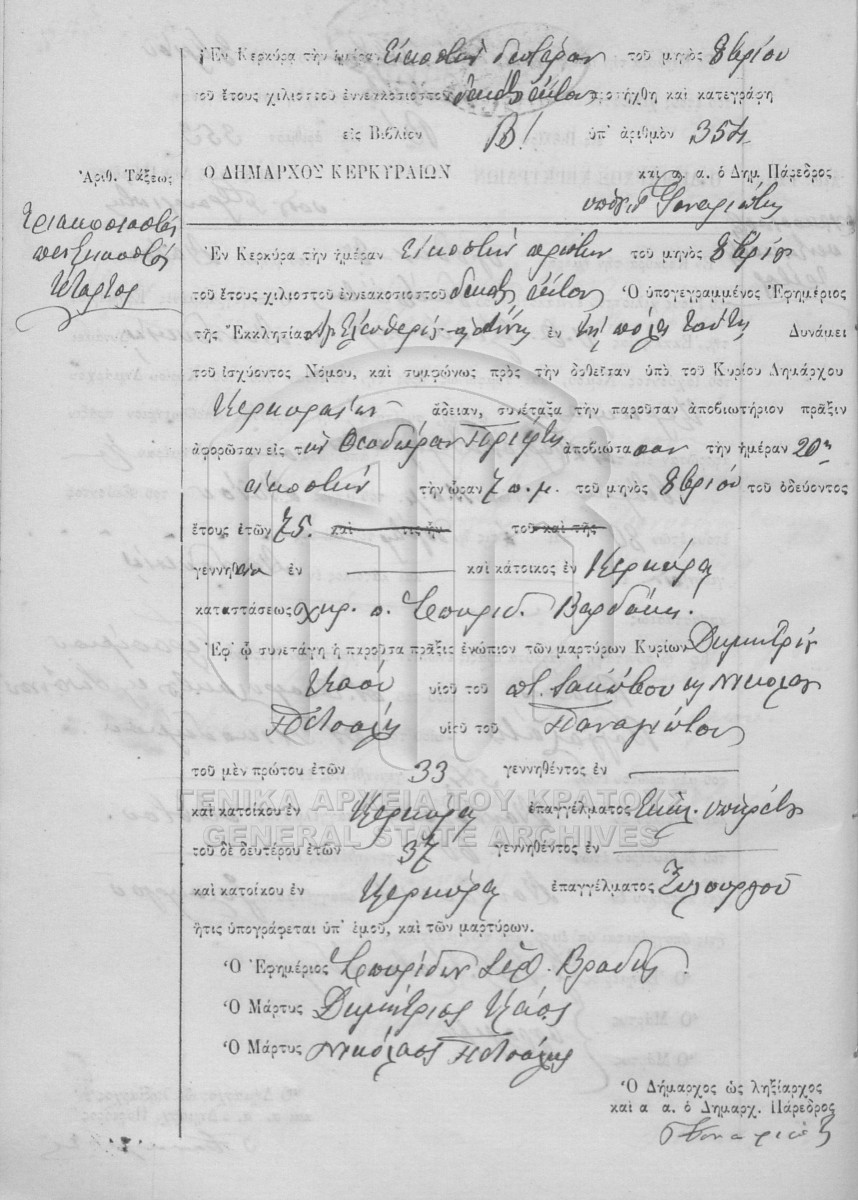 Ἐν Κερκύρᾳ τὴν ἡμέραν εἰκοστὴν δευτέραν τοῦ μηνὸς 8βρίου
τοῦ ἔτους χιλιοστοῦ ἐννεακοσιοστοῦ δεκάτου ἕκτου προσήχθη καὶ κατεγράφη
εἰς Βιβλίον Β! ὑπ' ἀριθμὸν 354
Ὁ ΔΗΜΑΡΧΟΣ ΚΕΡΚΥΡΑΙΩΝ
καὶ α. α. ὁ Δημ. Πάρεδρος
Ἀριθ. Τάξεως
τριακοσιοστός
πεντηκοστός
τέταρτος
Ἐν Κερκύρᾳ τὴν ἡμέραν εἰκοστὴν πρώτην τοῦ μηνὸς 8βρίου
τοῦ ἔτους χιλιοστοῦ ἐννεακοσιοστοῦ δεκάτου ἕκτου Ὁ ὑπογεγραμμένος Ἐφημέριος
τῆς Ἐκκλησίας Ἁγ. Ἐλευθερίου Ἄννης ἐν τῇ πόλει ταύτῃ Δυνάμει
τοῦ ἰσχύοντος Νόμου, καὶ συμφώνως πρὸς τὴν δοθεῖσαν ὑπὸ τοῦ Κυρίου Δημάρχου
Κερκυραίων ἄδειαν, συνέταξα τὴν παροῦσαν ἀποβιωτήριον πρᾶξιν
ἀφορῶσαν εἰς τὴν Θεοδώραν ἀποβιώσασαν τὴν ἡμέραν 20ην
εἰκοστὴν τὴν ὥραν 7 π.μ. τοῦ μηνὸς 8βρίου τοῦ ὁδεύοντος
ἔτους ἐτῶν 75. καὶ τις ἣν τοῦ καὶ τῆς
γεννηθεῖσα ἐν καὶ κάτοικος ἐν Κερκύρᾳ
καταστάσεως χηρ. π. Σπυρίδ. Βαρδάκη.
Ἐφ' ᾧ συνετάγη ἡ παροῦσα πρᾶξις ἐνώπιον τῶν μαρτύρων Κυρίων Δημητρίου
Κάσου υἱοῦ τοῦ π. Ἰακώβου κ Νικολάου
Πετσάλη υἱοῦ τοῦ Παναγιώτου
τοῦ μὲν πρώτου ἐτῶν 33 γεννηθέντος ἐν
καὶ κατοίκου ἐν Κερκύρᾳ ἐπαγγέλματος Ἐκκλ. ὑπηρέτου
τοῦ δὲ δευτέρου ἐτῶν 37 γεννηθέντος ἐν
καὶ κατοίκου ἐν Κερκύρᾳ ἐπαγγέλματος Ξυλουργοῦ
ἥτις ὑπογράφεται ὑπ' ἐμοῦ, καὶ τῶν μαρτύρων.
Ὁ Ἐφημέριος Σπυρίδων
Ὁ Μάρτυς Δημήτριος Κάσος
Ὁ Μάρτυς Νικόλαος Πετσάλης
Ὁ Δήμαρχος ὡς ληξίαρχος
καὶ α α. ὁ Δημαρχ. Πάρεδρος
ΓΕΝΙΚΑ ΑΡΧΕΙΑ ΤΟΥ ΚΡΑΤΟΥΣ
GENERAL STATE ARCHIVES